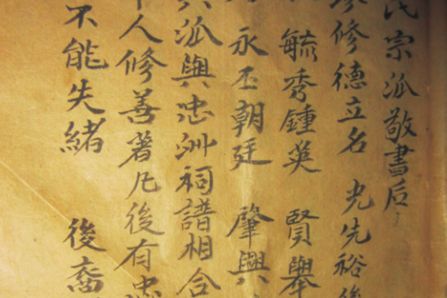 氏宗派敬書后
修德立名 光先裕後
毓秀鍾英 賢舉
永丕朝廷 肇興
派與忠洲祠譜相合
人修善著凡後有忠
不能失緒 後裔